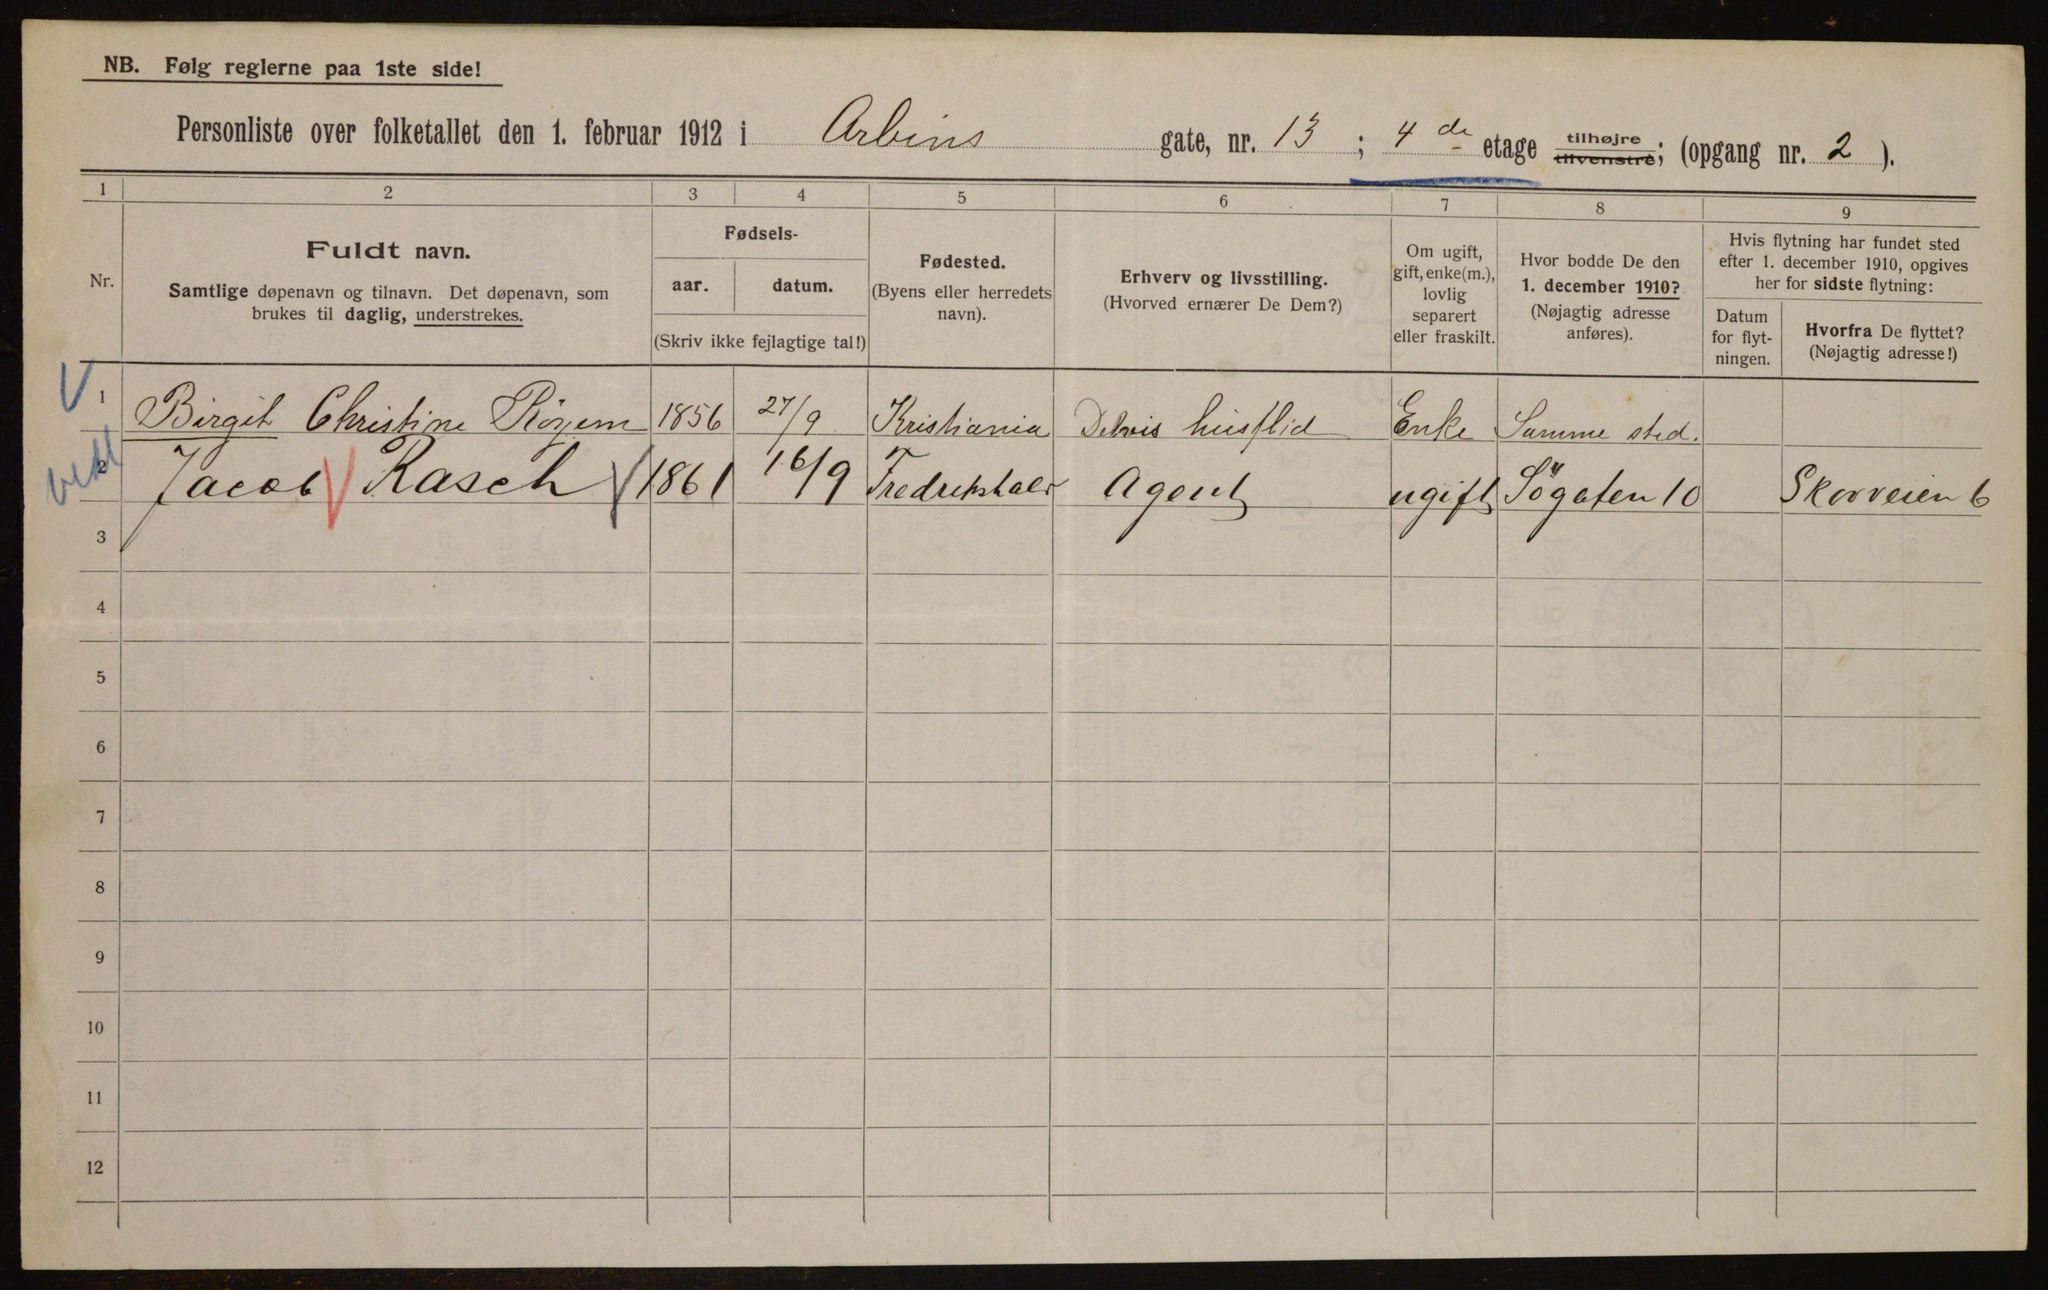 NB. Følg reglerne paa 1ste side!
Personliste over folketallet den 1. februar 1912 i Arbins gate, nr. 13; 4de etage tilhøjre tilvenstre; (opgang nr. 2).
1 2 3 4 5 6 7 8 9
Nr.
Fuldt navn.
Samtlige døpenavn og tilnavn. Det døpenavn, som
brukes til daglig, understrekes.
Fødsels-
aar. datum.
(Skriv ikke fejlagtige tal!)
Fødested.
(Byens eller herredets
navn).
Erhverv og livsstilling.
(Hvorved ernærer De Dem?)
Om ugift,
gift, enke(m.),
lovlig
separert
eller fraskilt.
Hvor bodde De den
1. december 1910?
(Nøjagtig adresse
anføres).
Hvis flytning har fundet sted
efter 1. december 1910, opgives
her for sidste flytning:
Datum
for flyt-
ningen.
Hvorfra De flyttet?
(Nøjagtig adresse!)
1 Birgit Christine 1856 27/9 Kristiania Delvis husflid Enke Samme sted.
2 Jacob Rasch 1861 16/9 Fredrikshald Agent ugift Søgaten 10 Skovveien 6
3
4
5
6
7
8
9
10
11
12